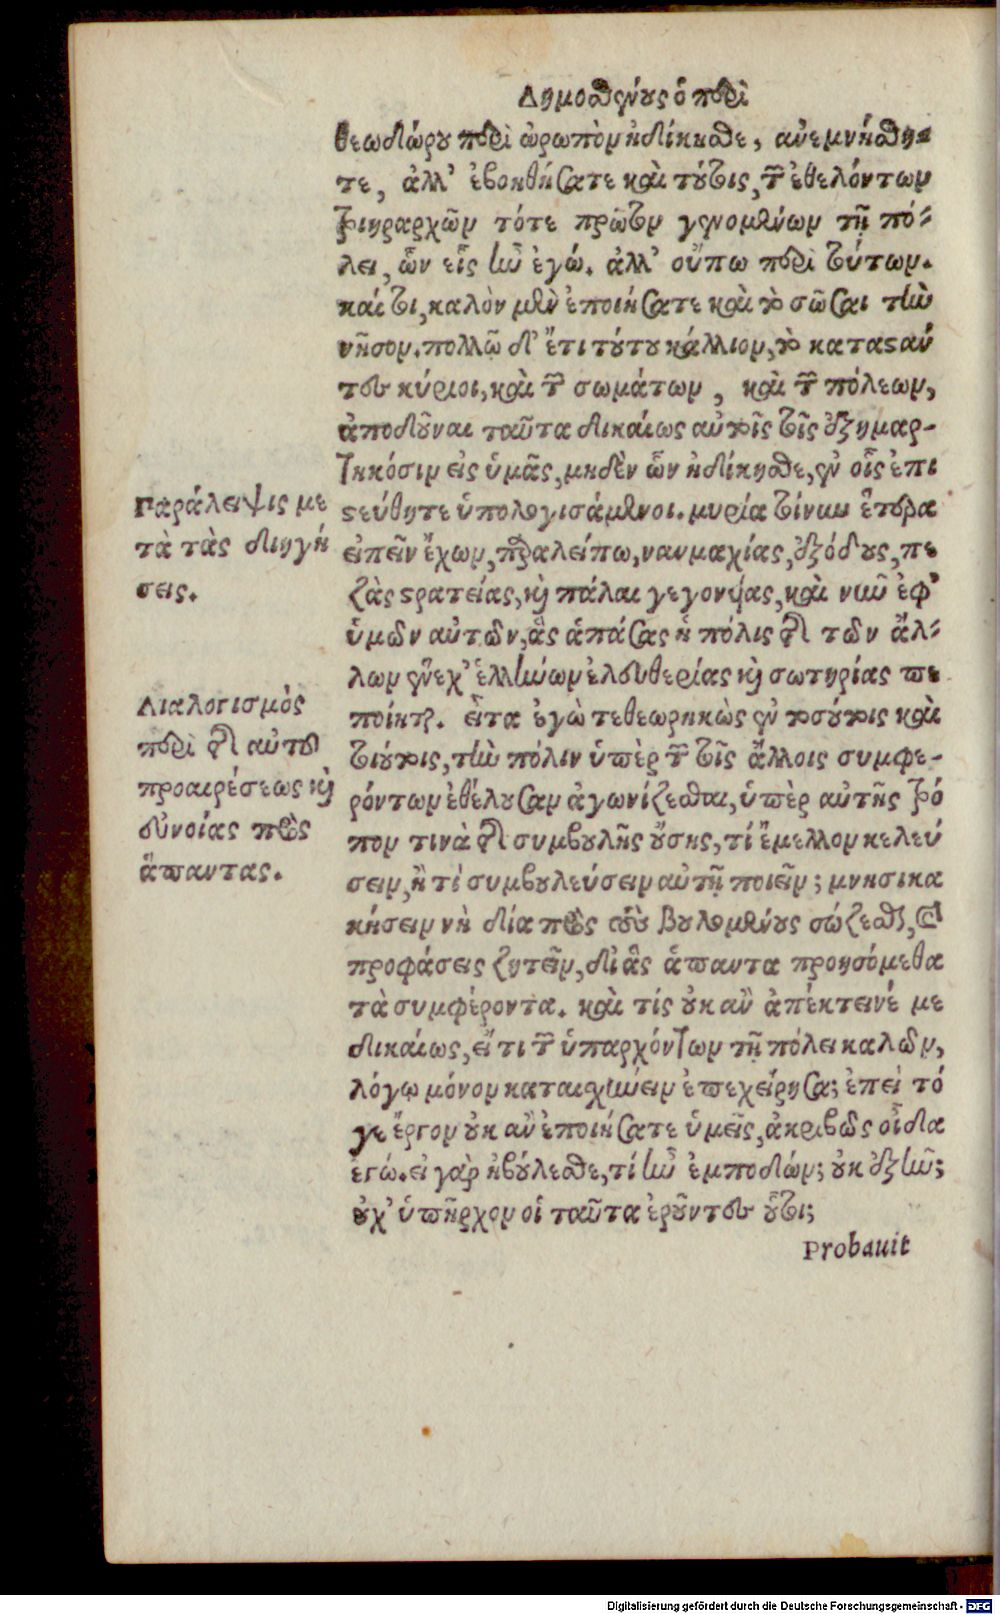 Δημοσθένους ὁ περὶ
θεωδώρου περὶ ὠρωπὸν ἠδίκησθε, ἀνεμνήσθη-
τε, ἀλλ' ἐβοηθήσατε καὶ τούτοις, τῶν ἐθελόντων
τριηραρχῶν τότε πρῶτον γενομένων τῇ πό-
λει, ὧν εἷς ἦν ἐγώ. ἀλλ' οὔπω περὶ τούτων.
καίτοι, καλὸν μὲν ἐποιήσατε καὶ τὸ σῶσαι τὴν
νῆσον. πολλῷ δ' ἔτι τούτου κάλλιον, τὸ καταστάν
τες κύριοι, καὶ τῶν σωμάτων, καὶ τῶν πόλεων,
ἀποδοῦναι ταῦτα δικαίως αὐτοῖς τοῖς ἐξημαρ-
τηκόσιν εἰς ὑμᾶς, μηδὲν ὧν ἠδίκησθε, ἐν οἷς ἐπι
στεύθητε ὑπολογισάμενοι. μυρία τοίνυν ἕτερα
εἰπεῖν ἔχων, παραλείπω, ναυμαχίας, ἐξόδους, πε
ζὰς στρατείας, καὶ πάλαι γεγονυίας, καὶ νῦν ἐφ'
ὑμῶν αὐτῶν, ἃς ἁπάσας ἡ πόλις τῆς τῶν ἄλ-
λων ἕνεχ' ἑλλήνων ἐλευθερίας καὶ σωτηρίας πε
ποίηται. εἶτα ἐγὼ τεθεωρηκὼς ἐν τοσούτοις καὶ
τοιούτοις, τὴν πόλιν ὑπὲρ τῶν τοῖς ἄλλοις συμφε-
ρόντων ἐθέλουσαν ἀγωνίζεσθαι, ὑπὲρ αὐτῆς τρό
πον τινὰ τῆς συμβουλῆς οὔσης, τί ἔμελλον κελεύ
σειν, ἢ τί συμβουλεύσειν αὐτῇ ποιεῖν; μνησικα
κήσειν νὴ δία πρὸς τοὺς βουλομένους σώζεσθαι, καὶ
προφάσεις ζητεῖν, δι' ἃς ἅπαντα προησόμεθα
τὰ συμφέροντα. καὶ τίς οὐκ ἂν ἀπέκτεινέ με
δικαίως, εἴ τι τῶν ὑπαρχόντων τῇ πόλει καλῶν,
λόγῳ μόνον καταισχύνειν ἐπεχείρησα; ἐπεὶ τό
γε ἔργον οὐκ ἂν ἐποιήσατε ὑμεῖς, ἀκριβῶς οἶδα
ἐγώ. εἰ γὰρ ἠβούλεσθε, τί ἦν ἐμποδών; οὐκ ἐξῆν;
οὐχ' ὑπῆρχον οἱ ταῦτα ἐροῦντες οὗτοι;
Probauit
Παράλειψις με
τὰ τὰς διηγή
σεις.
Διαλογισμὸς
περὶ τῆς αὐτοῦ
προαιρέσεως καὶ
εὐνοίας πρὸς
ἅπαντας.
Digitalisierung gefördert durch die Deutsche Forschungsgemeinschaft - DFG